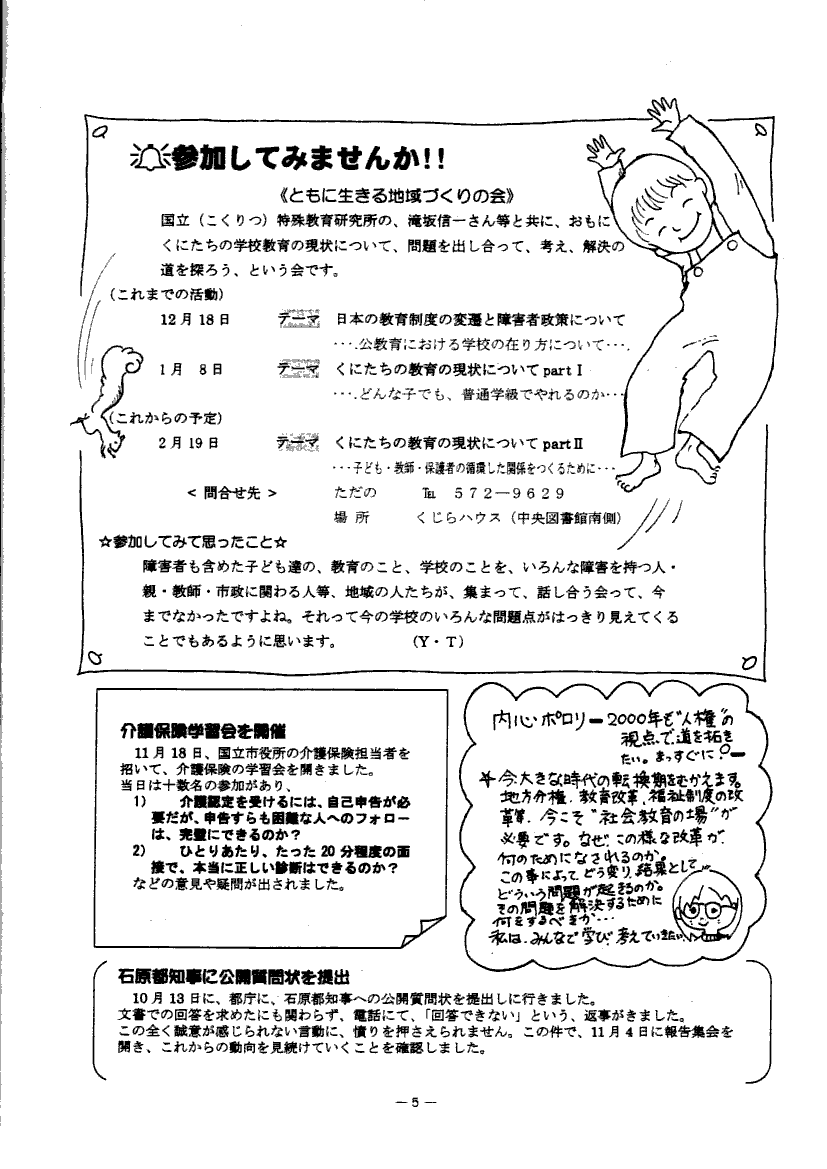 参加してみませんか!!
《ともに生きる地域づくりの会》
国立（こくりつ）特殊教育研究所の、滝坂信一さん等と共に、おもに
くにたちの学校教育の現状について、問題を出し合って、考え、解決の
道を探ろう、という会です。
（これまでの活動）
12月18日 テーマ 日本の教育制度の変遷と障害者政策について
‥‥公教育における学校の在り方について‥‥
1月 8日 テーマ くにたちの教育の現状について part Ⅰ
‥‥どんな子でも、普通学級でやれるのか‥‥
（これからの予定）
2月19日 テーマ くにたちの教育の現状について part Ⅱ
‥‥子ども・教師・保護者の循環した関係をつくるために‥‥
< 問合せ先 > ただの ℡ 572―9629
場 所 くじらハウス（中央図書館南側）
☆参加してみて思ったこと☆
障害者も含めた子ども達の、教育のこと、学校のことを、いろんな障害を持つ人・
親・教師・市政に関わる人等、地域の人たちが、集まって、話し合う会って、今
までなかったですよね。それって今の学校のいろんな問題点がはっきり見えてくる
ことでもあるように思います。 （Y・T）
介護保険学習会を開催
11月18日、国立市役所の介護保険担当者を
招いて、介護保険の学習会を開きました。
当日は十数名の参加があり、
1) 介護認定を受けるには、自己申告が必
要だが、申告すらも困難な人へのフォロー
は、完璧にできるのか？
2) ひとりあたり、たった 20 分程度の面
接で、本当に正しい診断はできるのか？
などの意見や疑問が出されました。
内心ポロリー2000年も"人権"の
視点で道を拓き
たい。まっすぐに!ー
今大きな時代の転換期をむかえます。
地方分権、教育改革、福祉制度の改
革等、今こそ"社会教育の場"が
必要です。なぜ、この様な改革が、
何のためになされるのか。
この事によってどう変り、結果として
どういう問題が起きるのか。
その問題を解決するために
何をするべきか…
私は、みんなで学び考えていきたい
石原都知事に公開質問状を提出
10月13日に、都庁に、石原都知事への公開質問状を提出しに行きました。
文書での回答を求めたにも関わらず、電話にて、「回答できない」という、返事がきました。
この全く誠意が感じられない言動に、憤りを押さえられません。この件で、11月4日に報告集会を
開き、これからの動向を見続けていくことを確認しました。
― 5 ―